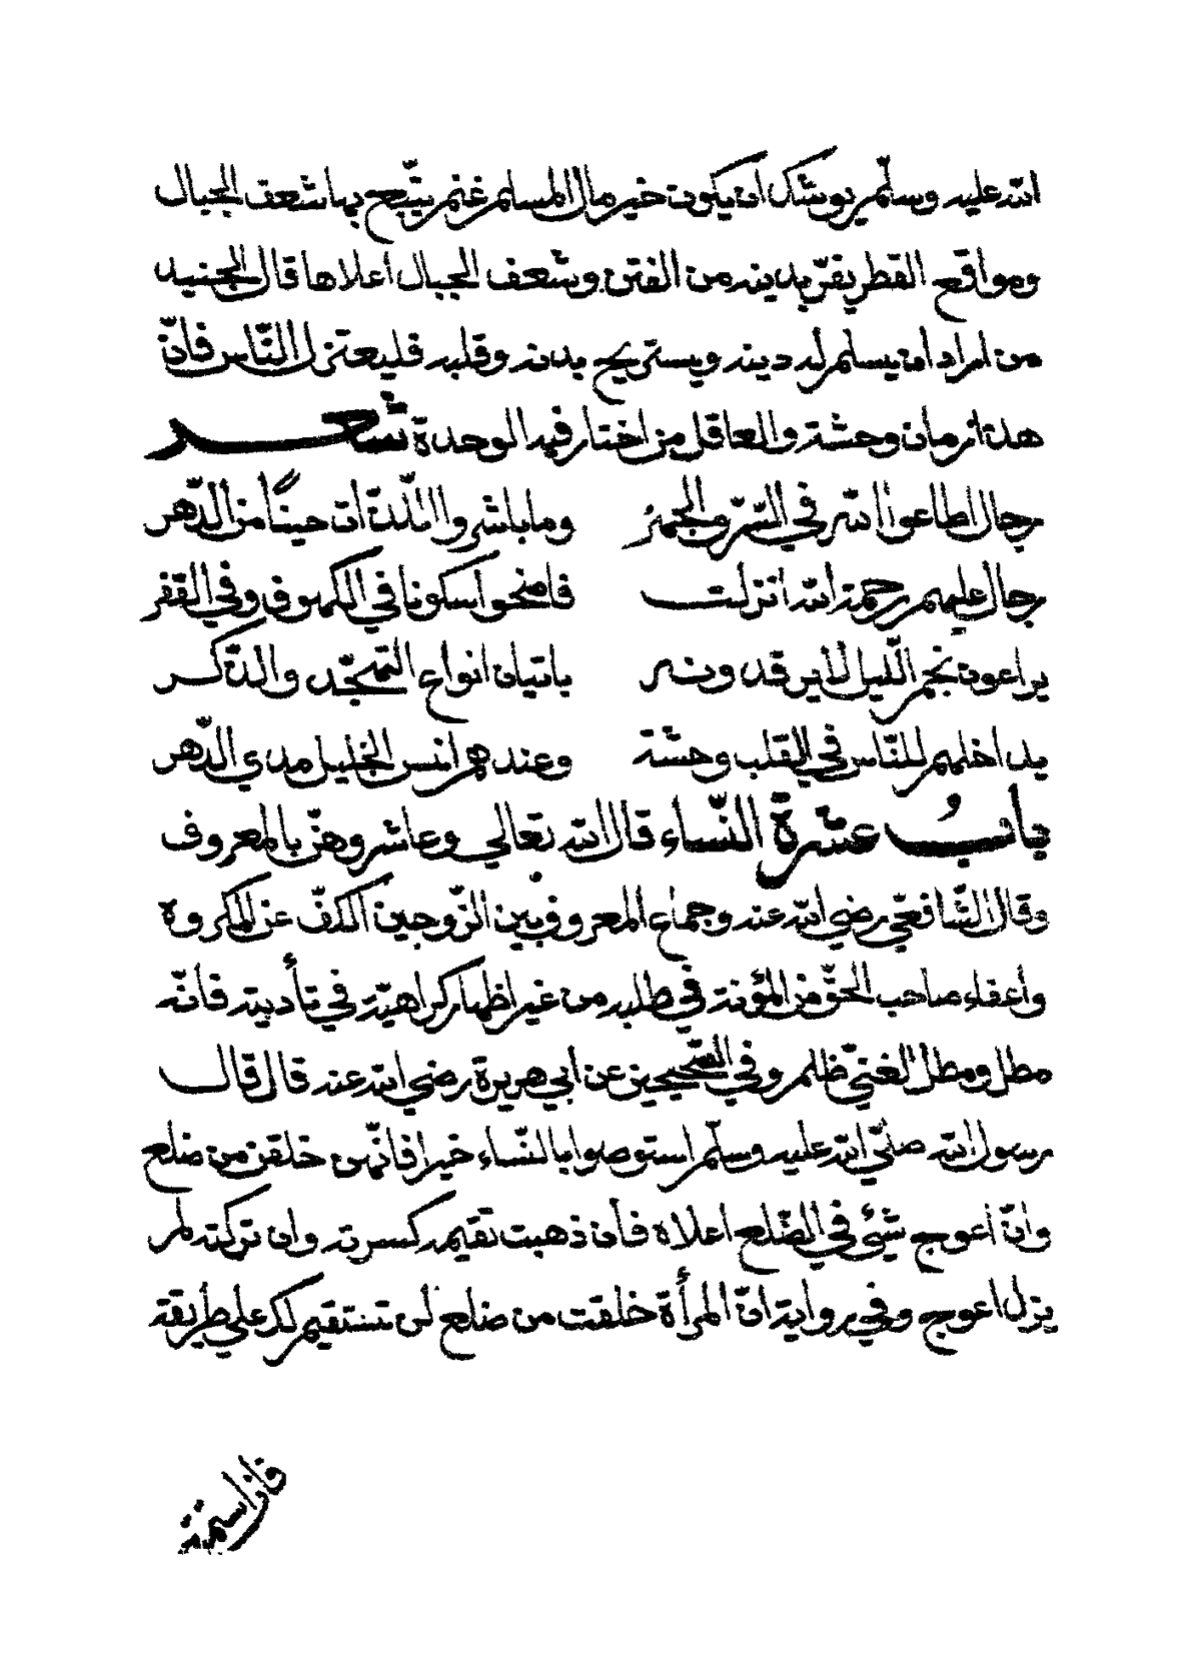 الله عليه وسلّم يوشك ان يكون خير مال المسلم غنم يتّبع بها شعف الجبال
ومواقع القطر يفرّ بدينه من الفتن وشعف الجبال أعلاها قال الجنيد
من اراد ان يسلم له دينه ويستريح بدنه وقلبه فليعتزل النّاس فانّ
هذا زمان وحشة والعاقل من اختار فيه الوحدة شعر
رجال اطاعوا الله في السّرّ والجهر وما باشروا اللّذّات حينًا من الدّهر
رجال عليهم رحمة الله انزلت فاضحوا سكونا في الكهوف وفي القفر
يراعون نجم اللّيل لا يرقدونه باتيان انواع التّهجّد والذّكر
يداخلهم للنّاس في القلب وحشة وعندهم انس الخليل مدي الدّهر
بابُ عشرة النّساء قال الله تعالي وعاشروهنّ بالمعروف
وقال الشّافعيّ رضي الله عنه وجماع المعروف بين الزّوجين الكفّ عن المكروه
وأعفاء صاحب الحقّ من المؤنة في طلبه من غير اظهار كراهيّة في تأديته فانّه
مطل ومطل الغنيّ ظلم وفي الصّحيحين عن أبي هريرة رضي الله عنه قال قال
رسول الله صلّي الله عليه وسلّم استوصوا بالنّساء خيرا فانّهنّ خلقن من ضلع
وانّ اعوج شيئ في الضّلع اعلاه فأن ذهبت تقيمه كسرته وان تركته لم
يزل اعوج وفي رواية انّ المرأة خلقت من ضلع لن تستقيم لك علي طريقة
فان استمتعت